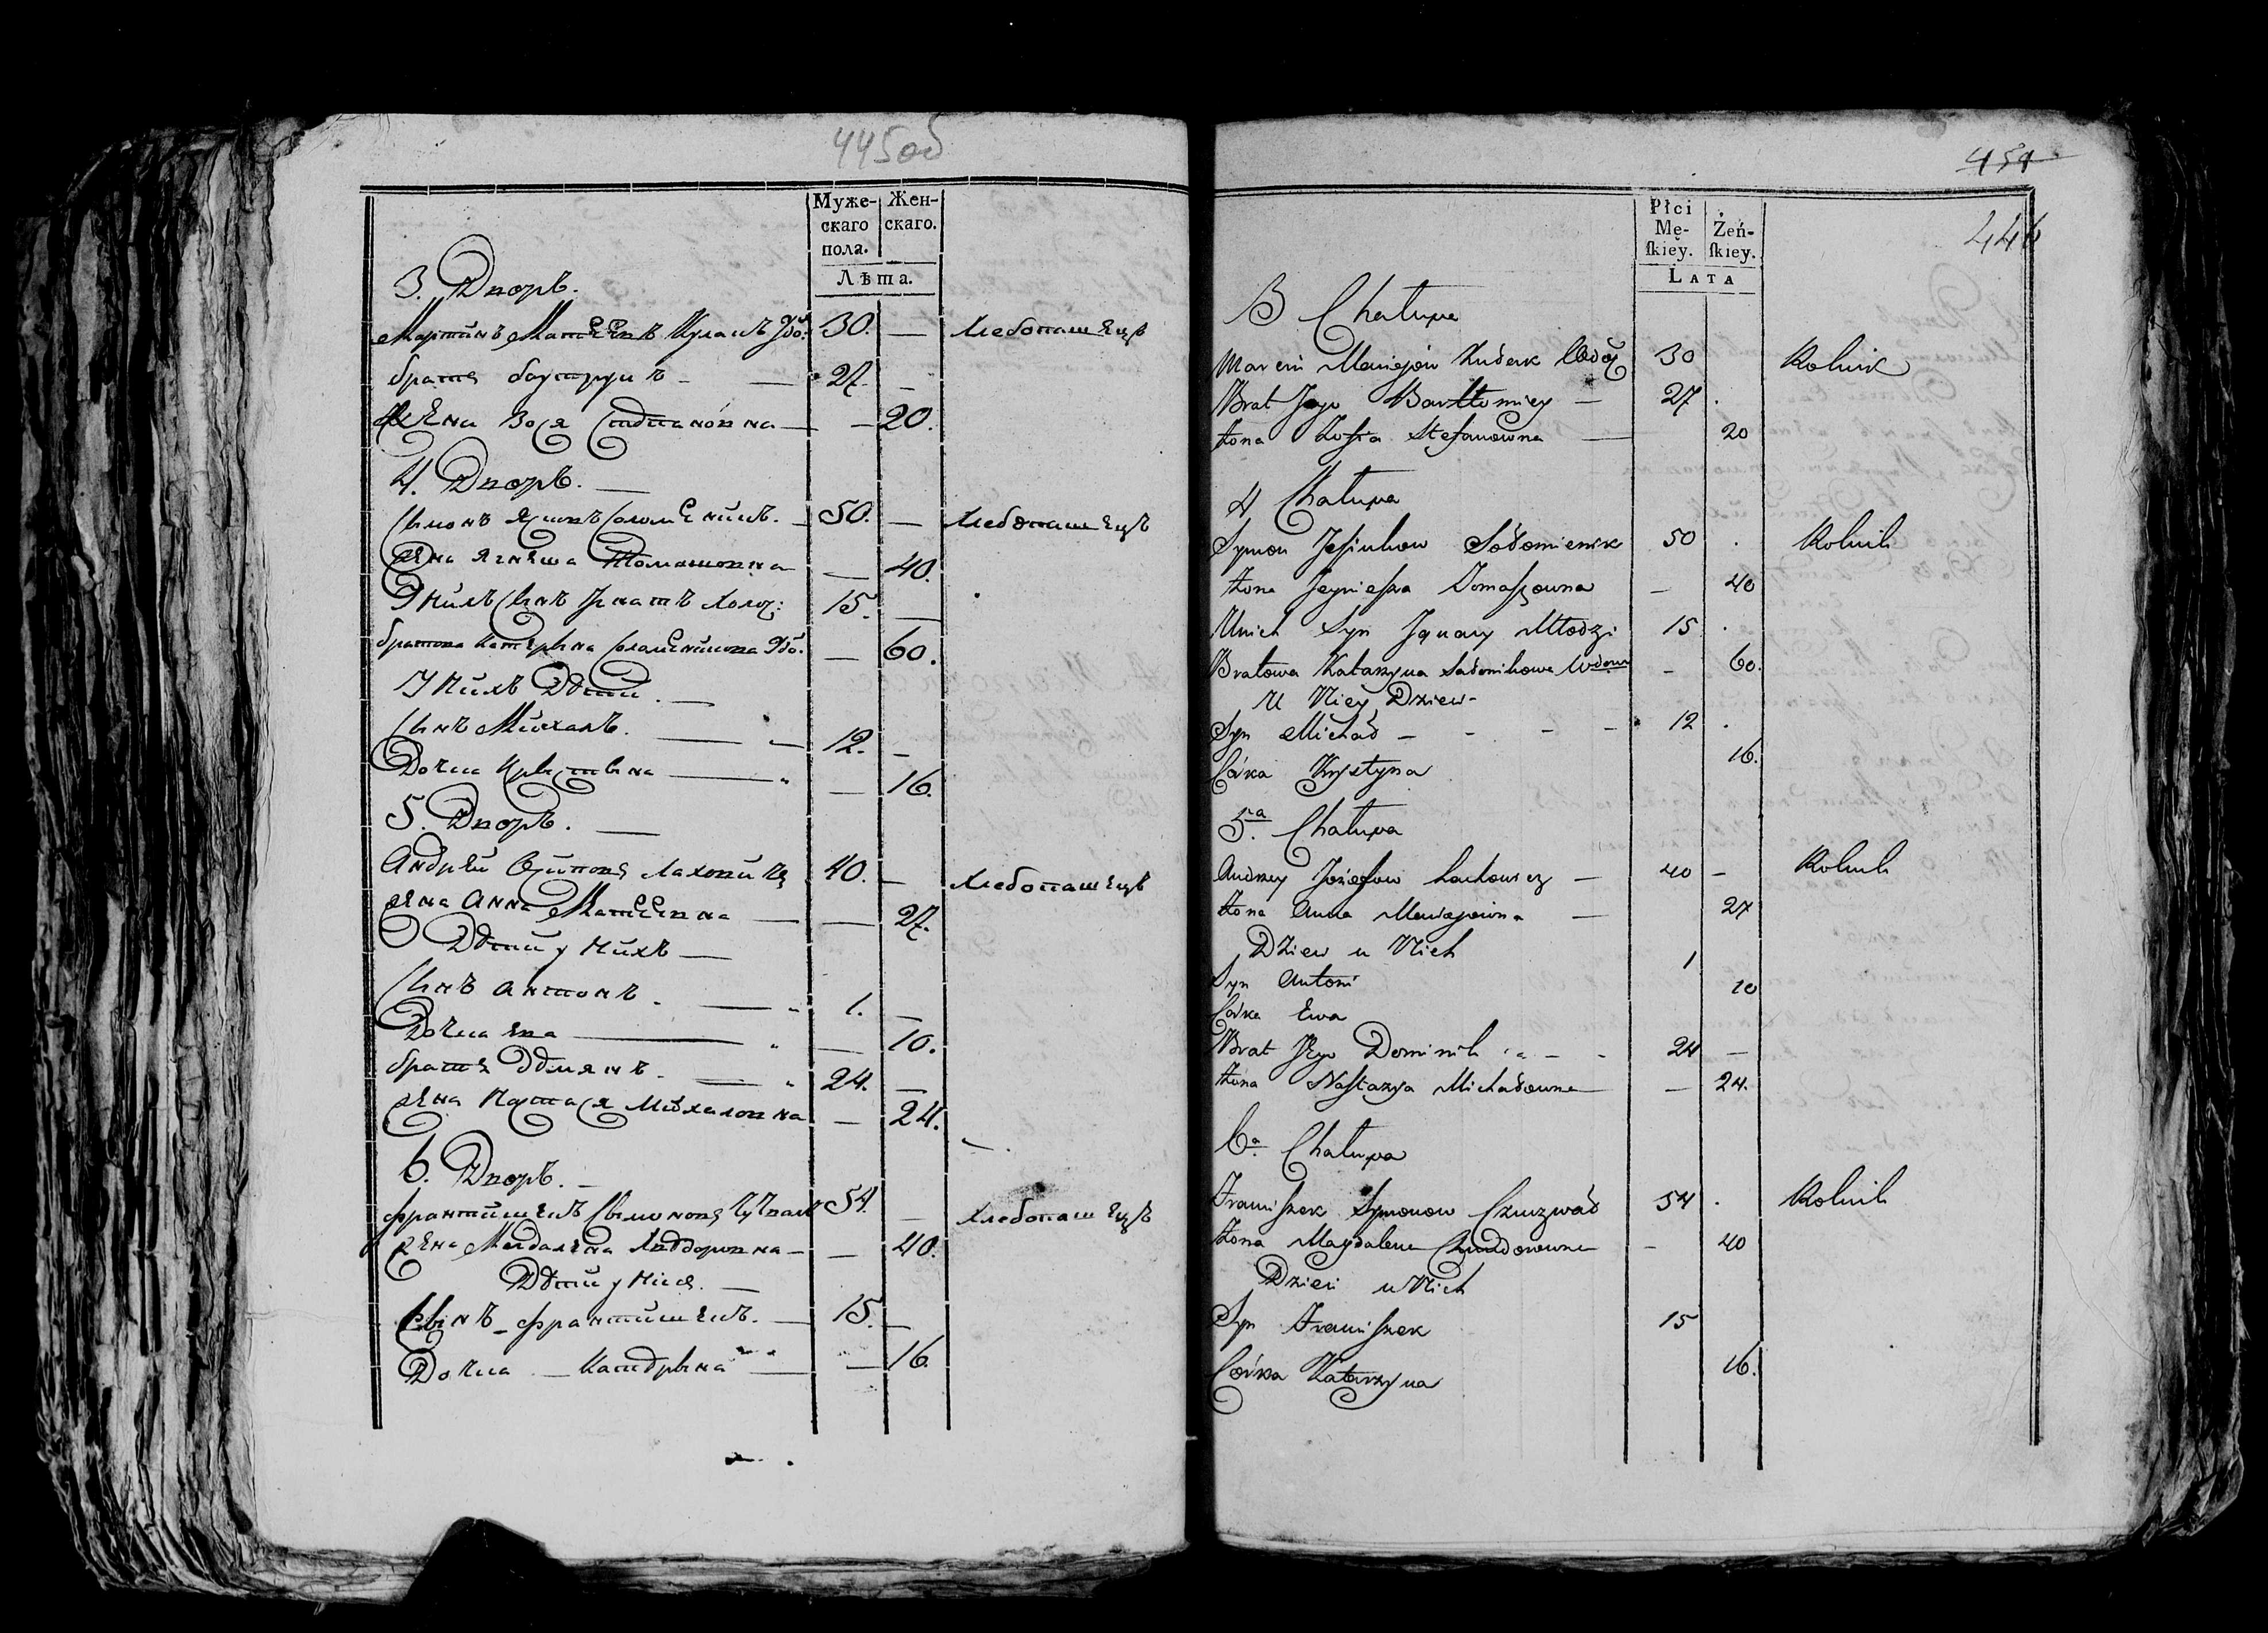 445об
Муже-
скаго
пола.
Жен-
скаго.
Лѣта.
3. Дворъ.
30. —
Хлебопашецъ
братя — 27. —
Жена Зося Стѣпановна — — 20.
4. Дворъ. —
50. — Хлебопашецъ
жена Агнеша Томашовна — 40.
15. —
братова Катерына — 60.
У нихъ Дѣти. —
Сынъ Михалъ. — 12. —
Дочка Крыстына — — 16.
5. Дворъ. —
Андрей 40. — Хлебопашецъ
жена Анна Матеевна — — 27.
Дѣти у нихъ —
Сынъ Антонъ. — 1. —
Дочка Ева — — 10.
братя — 24. —
жена Настася Михаловна — 24.
6. Дворъ. —
Франтишекъ Сымоновъ 54. — Хлебопашецъ
жена Магдалена — — 40.
Дѣти у нихъ. —
Сынъ — Франтишекъ. — 15. —
Дочка — Катдрына — — 16.
454
446
Płci
Mę-
ſkiey.
Żeń-
ſkiey.
LATA
3 Chałupa
Marcin Maciejów 30 Rolnik
Brat Jego Bartłomiey — 27 .
Żona Zofia Stefanowna — 20
4 Chałupa
Symon 50 . Rolnik
Żona Jegnieſzka Tomaſzowna — 40
Unich Syn Jgnacy Młodzi 15 .
Bratowa Katarzyna Wdowa — 60.
U Niey Dziew-
Syn Michał — - - — 12 .
Córka Krystyna 16.
5ta Chałupa
Andrzey Józefow Lachowicz — 40 — Rolnik
Żona Anna Maciejowna — 27
Dziew u Nich
Syn Antoni 1
Córka Ewa 10
Brat Jego Dominik 24 —
Żona Nastazya Michałowna — 24.
6a Chałupa
Franciſzek Symonow 54 . Rolnik
Żona Magdalena — 40
Dzieci u Nich
Syn Franciſzek 15
Córka Katarzyna 16.